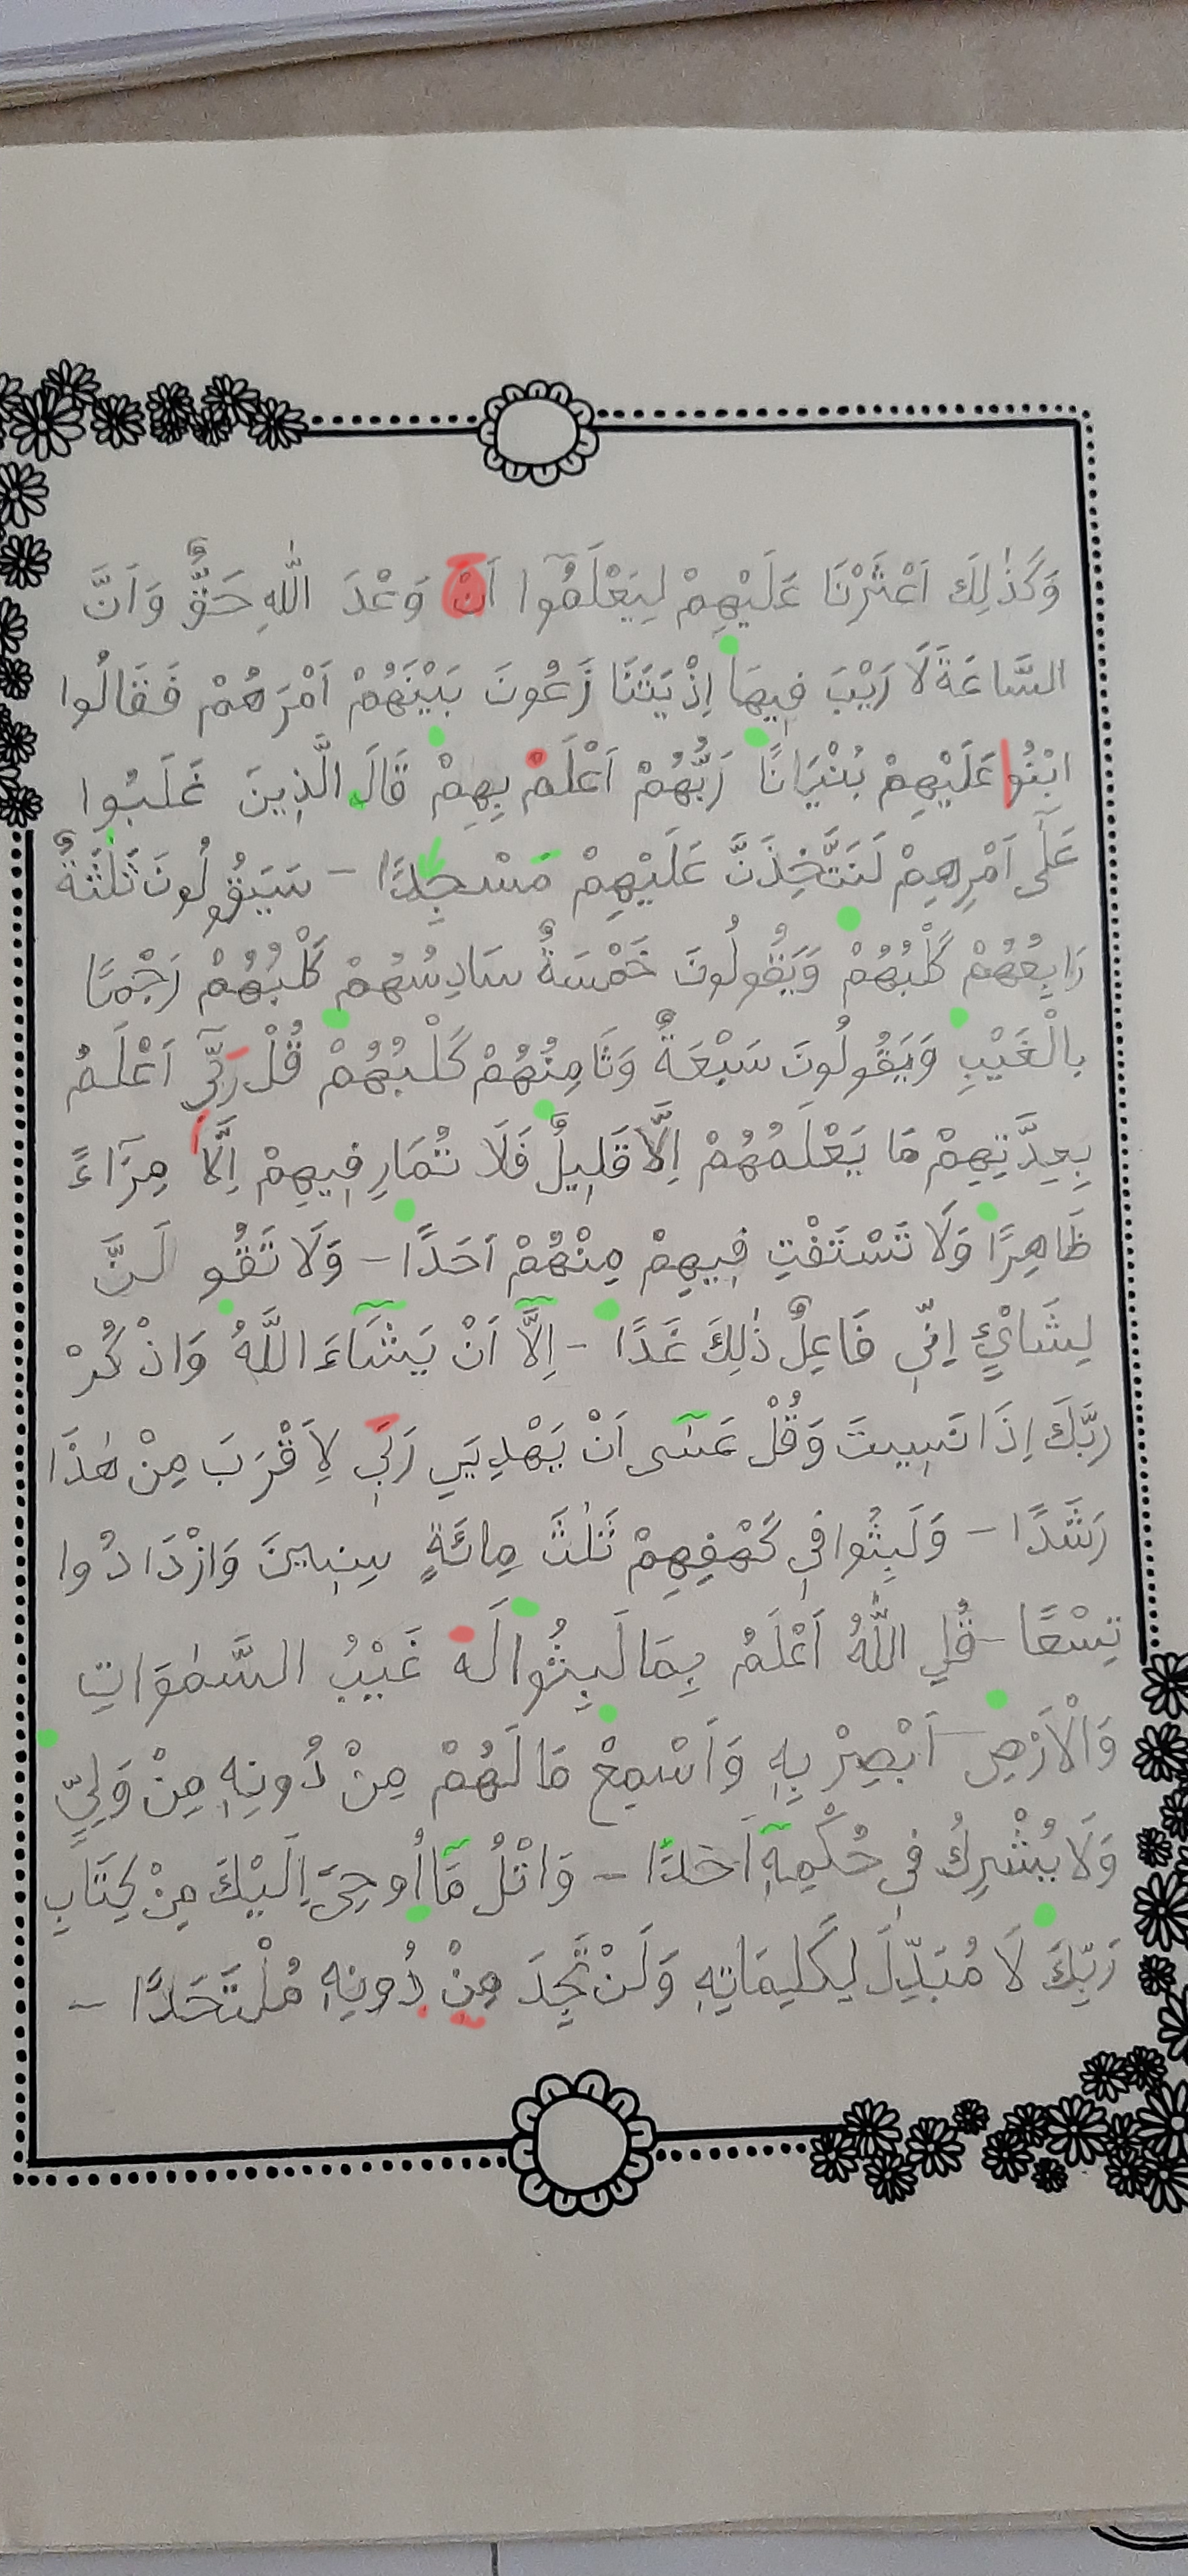 وَكَذٰلِكَ اَعْثَرْنَا عَلَيْهِمْ لِيَعْلَمُٓوا اَنْ وَعْدَ اللّٰهِ حَقٌّ وَاَنَّ
السَّاعَةَ لَا رَيْبَ فِيهَا اِذْ يَتَنَا زَعُونَ بَيْنَهُمْ اَمْرَهُمْ فَقَالُوا
ابْنُوا عَلَيْهِمْ بُنْيَانًا رَبُّهُمْ اَعْلَمْ بِهِمْ قَالَ الَّذِينَ غَلَبُوا
عَلٰٓى اَمْرِهِمْ لَنَتَّخِذَنَّ عَلَيْهِمْ مَسْجِدًا - سَيَقُولُونَ ثَلٰثَةٌ
رَابِعُهُمْ كَلْبُهُمْ وَيَقُولُونَ خَمْسَةٌ سَادِسُهُمْ كَلْبُهُمْ رَجْمًا
بِالْغَيْبِ وَيَقُولُونَ سَبْعَةٌ وَثَامِنُهُمْ كَلْبُهُمْ قُلْ رَبِّٓى اَعْلَمُ
بِعِدَّتِهِمْ مَا يَعْلَمُهُمْ اِلَّا قَلِيلٌ فَلَا تُمَارِ فِيهِمْ اِلَّا مِرَٓاءً
ظَاهِرًا وَلَا تَسْتَفْتِ فِيهِمْ مِنْهُمْ اَحَدًا - وَلَا تَقُو لَنَّ
لِشَايْءٍ اِنِّي فَاعِلٌ ذٰلِكَ غَدًا - اِلَّٓا اَنْ يَشَٓاءَ اللَّهُ وَاذْكُرْ
رَبَّكَ اِذَا نَسِيتَ وَقُلْ عَسٰٓى اَنْ يَهْدِيَنِ رَبِّي لِاَقْرَبَ مِنْ هٰذَا
رَشَدًا - وَلَبِثُوا فِي كَهْفِهِمْ ثَلٰثَ مِائَةٍ سِنِينَ وَازْدَادُوا
تِسْعًا - قُلِ اللّٰهُ اَعْلَمُ بِمَا لَبِثُوا لَه غَيْبُ السَّمٰوَاتِ
وَالْاَرْضِ اَبْصِرْ بِهِ وَاَسْمِعْ مَا لَهُمْ مِنْ دُونِهِ مِنْ وَلِيٍّ
وَلَا يُشْرِكُ فِي حُكْمِهِٓ اَحَدًا - وَاتْلُ مَٓا اُو حِيَ اِلَيْكَ مِنْ كِتَابِ
رَبِّكَ لَا مُبَدِّلَ لِكَلِيمَاتِهِ وَلَنْ تَجِدَ مِنْ دُونِهِ مُلْتَحَدًا -